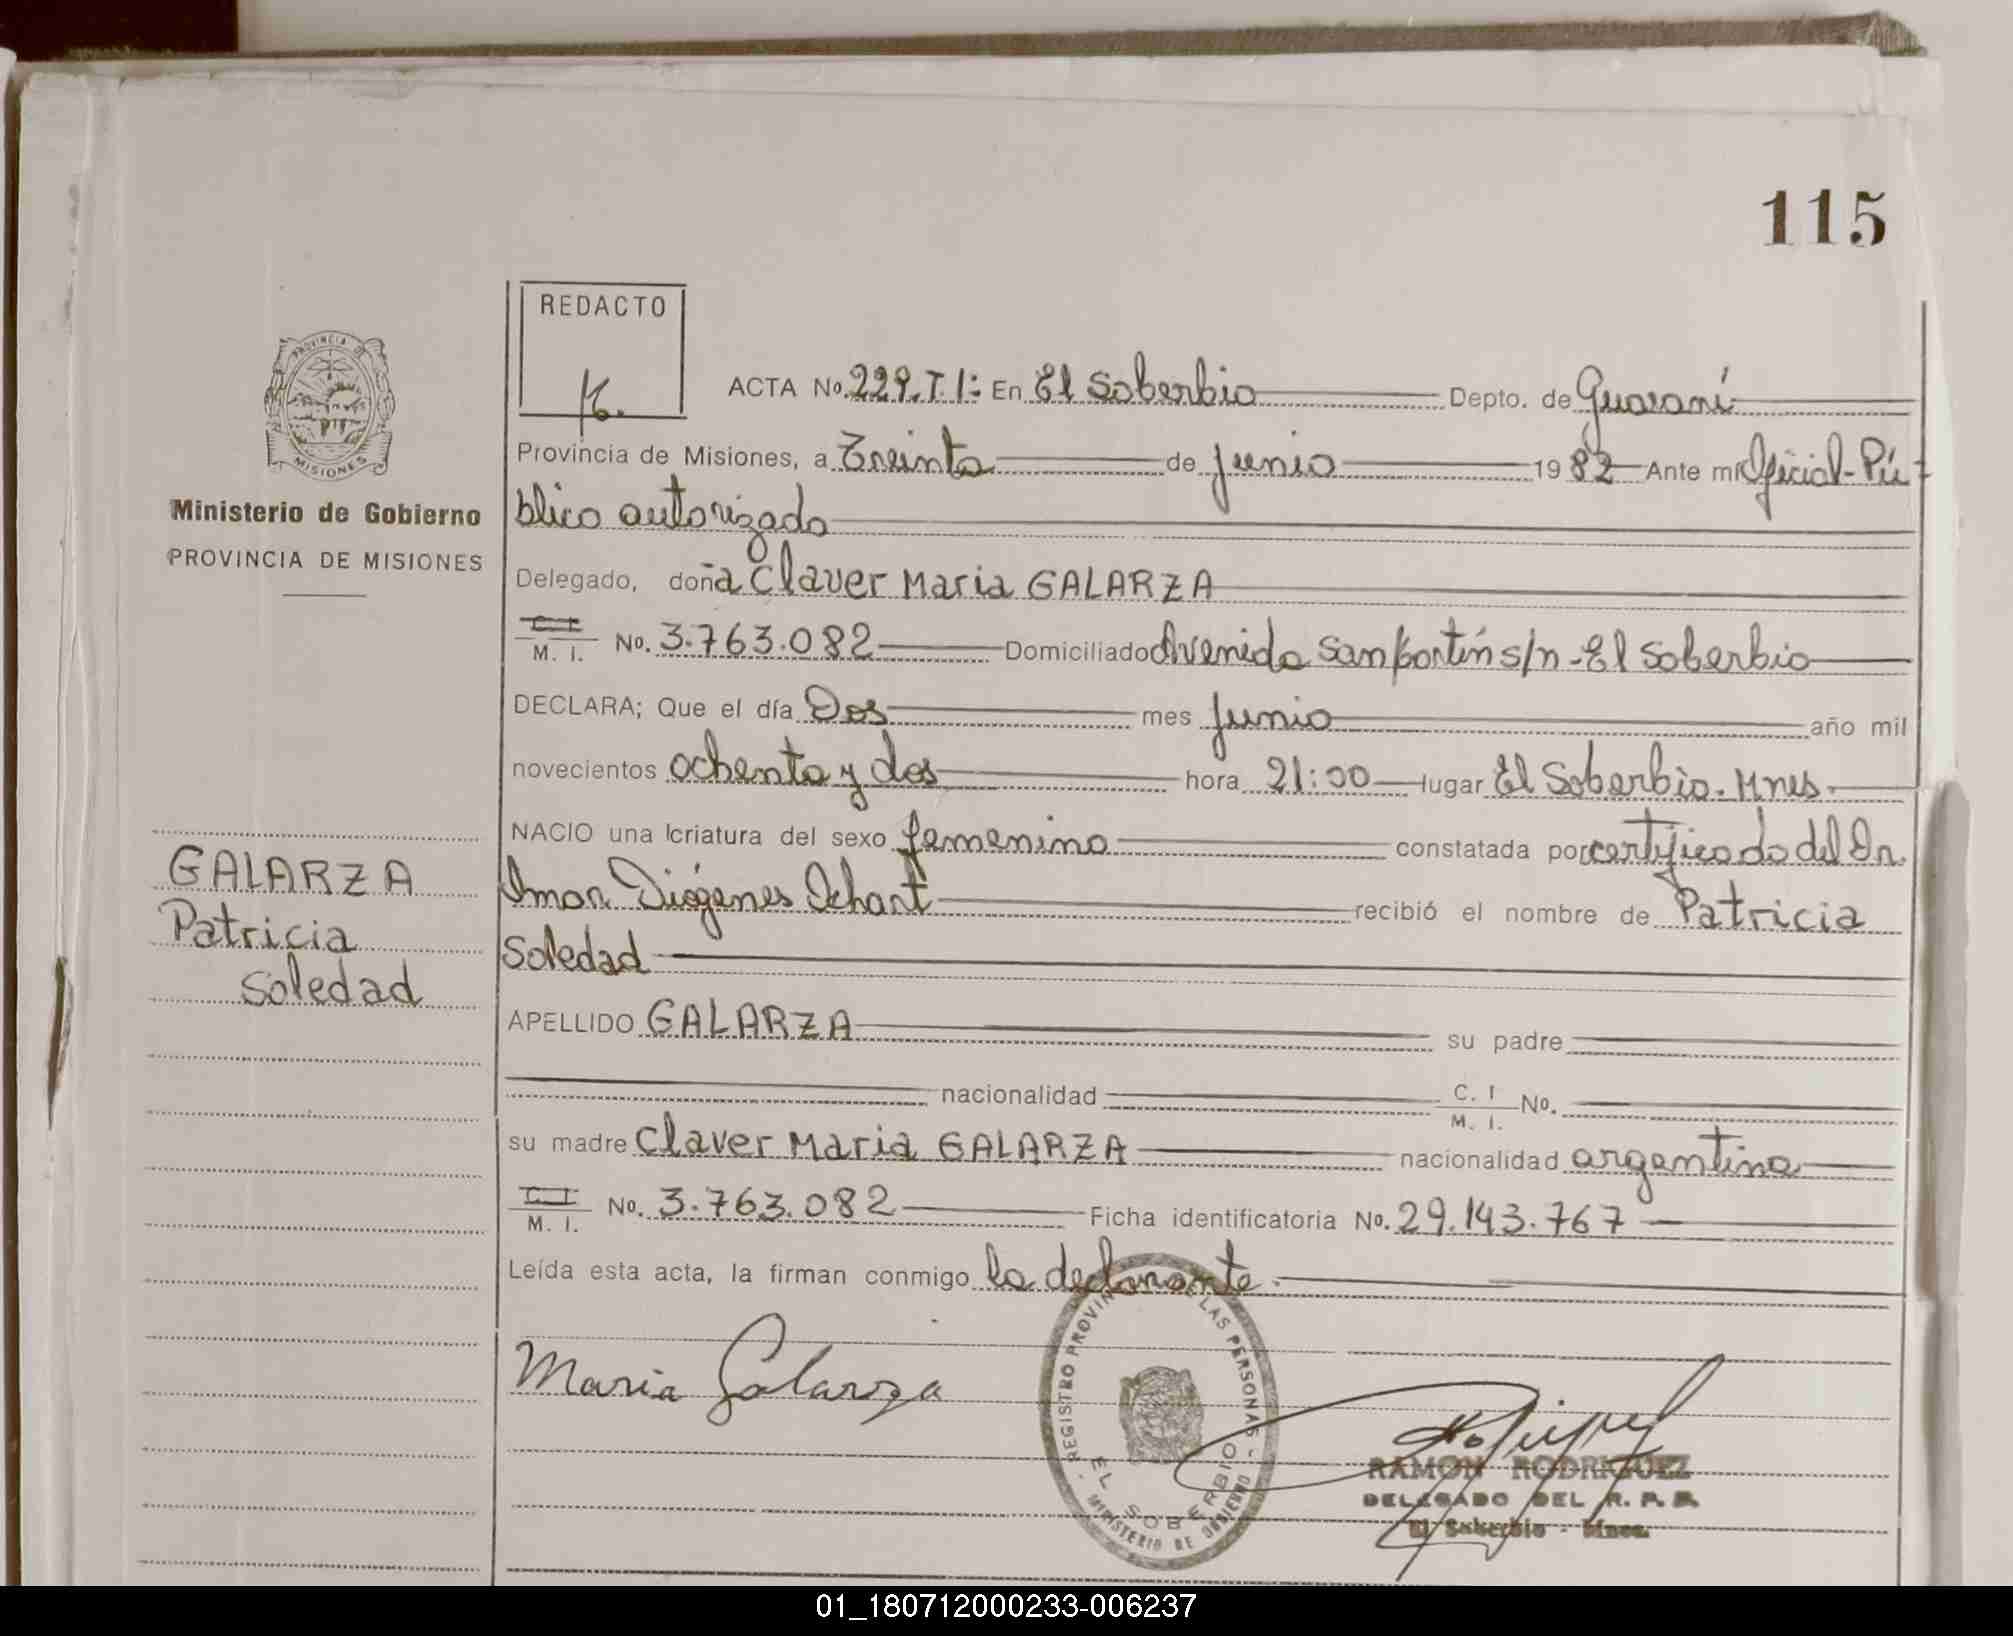 115
REDACTO
PROVINCIA DE
MISIONES
Ministerio de Gobierno
PROVINCIA DE MISIONES
ACTA No. 229.T.I: En El Soberbio Depto. de Guaraní
Provincia de Misiones, a Treinta de junio 1982 Ante mi Oficial-Pú-
blico autorizado
Delegado, doña Claver Maria GALARZA
C. I. M. I. No. 3.763.082 Domiciliado Avenida San Martín s/n-El Soberbio
DECLARA; Que el día Dos mes junio año mil
novecientos ochenta y dos hora 21:00 lugar El Soberbio. Mnes.
NACIO una criatura del sexo femenino constatada por certificado del Dr.
Diógenes recibió el nombre de Patricia
Soledad
GALARZA
Patricia
Soledad
APELLIDO GALARZA su padre
nacionalidad C. I M. I. No.
su madre Claver Maria GALARZA nacionalidad argentina
C. I. M. I. No. 3.763.082 Ficha identificatoria No. 29.143.767
Leída esta acta, la firman conmigo la declarante.
Maria Galarza
REGISTRO PROVIN LAS PERSONAS
EL SOBERBIO
MINISTERIO DE GOBIERNO
RAMON RODRIGUEZ
DELEGADO DEL R. P. P.
El Soberbio - Mnes.
01_180712000233-006237